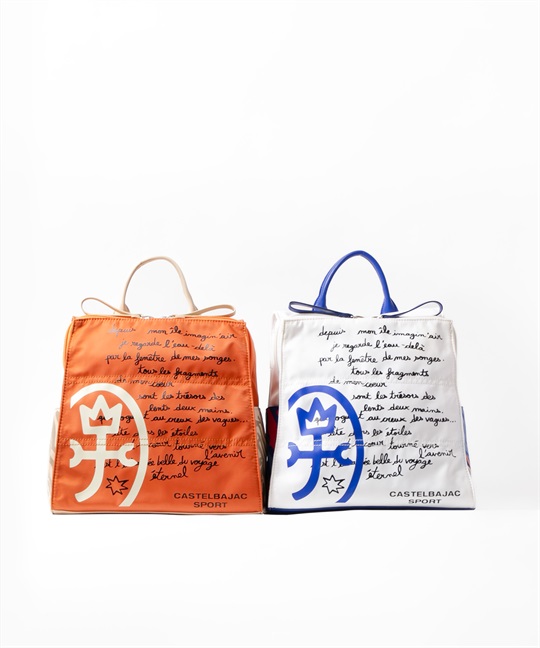 depuis mon île imagin'air
je regarde l'eau-delà
par la fenêtre de mes songes.
tous les fragments
de mon cœur
sont les trésors des
lents deux mains.
et au creux des vagues...
dans les étoiles
cœur tourné vers
l'avenir
et l' belle du voyage
éternel
CASTELBAJAC
SPORT
depuis mon île imagin'air
je regarde l'eau-delà
par la fenêtre de mes songes.
tous les fragments
de mon cœur
sont les trésors des
lents deux mains.
et au creux des vagues...
dans les étoiles
cœur tourné vers
l'avenir
et l' belle du voyage
éternel
CASTELBAJAC
SPORT